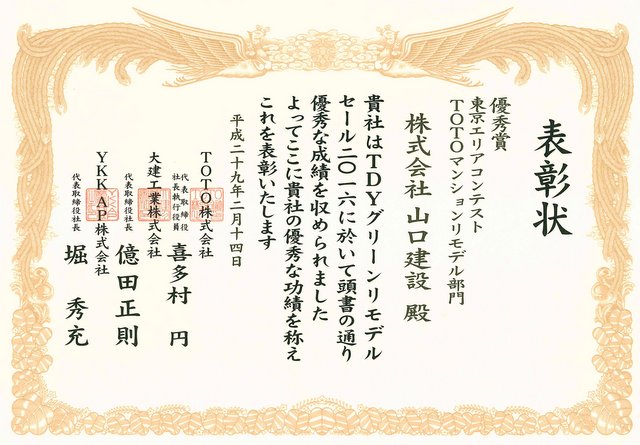 表彰状
優秀賞
東京エリアコンテスト
TOTOマンションリモデル部門
株式会社 山口建設 殿
貴社はTDYグリーンリモデル
セール二〇一六に於いて頭書の通り
優秀な成績を収められました
よってここに貴社の優秀な功績を称え
これを表彰いたします
平成二十九年二月十四日
TOTO株式会社
代表取締役
社長執行役員
喜多村 円
大建工業株式会社
代表取締役社長
億田正則
YKK AP株式会社
代表取締役社長
堀 秀充